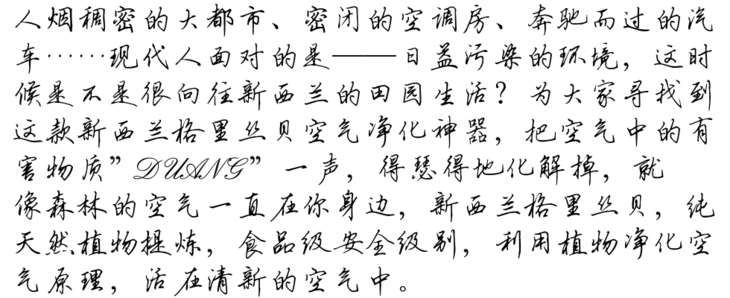 人烟稠密的大都市、密闭的空调房、奔驰而过的汽
车……现代人面对的是——日益污染的环境，这时
候是不是很向往新西兰的田园生活？为大家寻找到
这款新西兰格里丝贝空气净化神器，把空气中的有
害物质”DUANG”一声，得瑟得地化解掉，就
像森林的空气一直在你身边，新西兰格里丝贝，纯
天然植物提炼，食品级安全级别，利用植物净化空
气原理，活在清新的空气中。